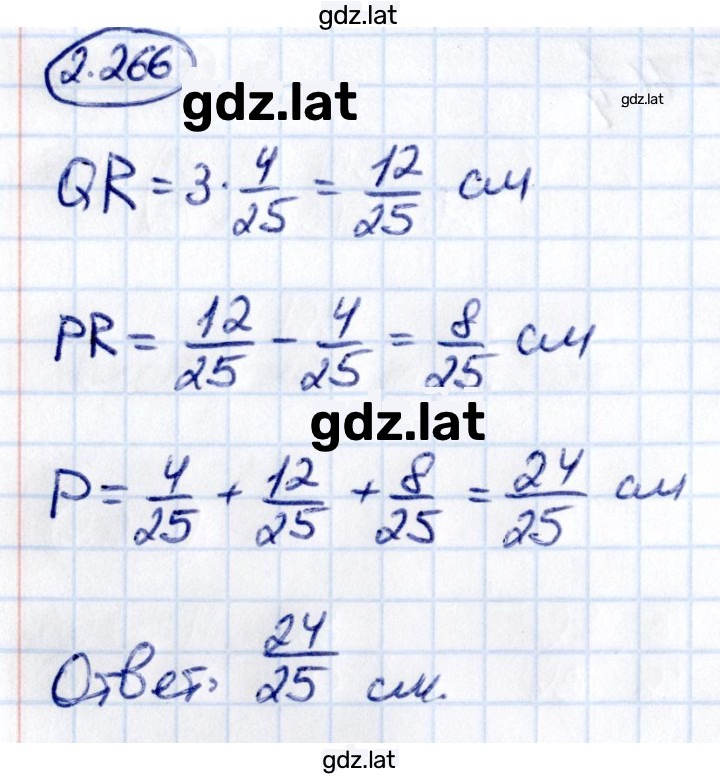 gdz.lat
2.266
gdz.lat
gdz.lat
QR = 3 · 4/25 = 12/25 см
PR = 12/25 - 4/25 = 8/25 см
gdz.lat
P = 4/25 + 12/25 + 8/25 = 24/25 см
Ответ: 24/25 см.
gdz.lat